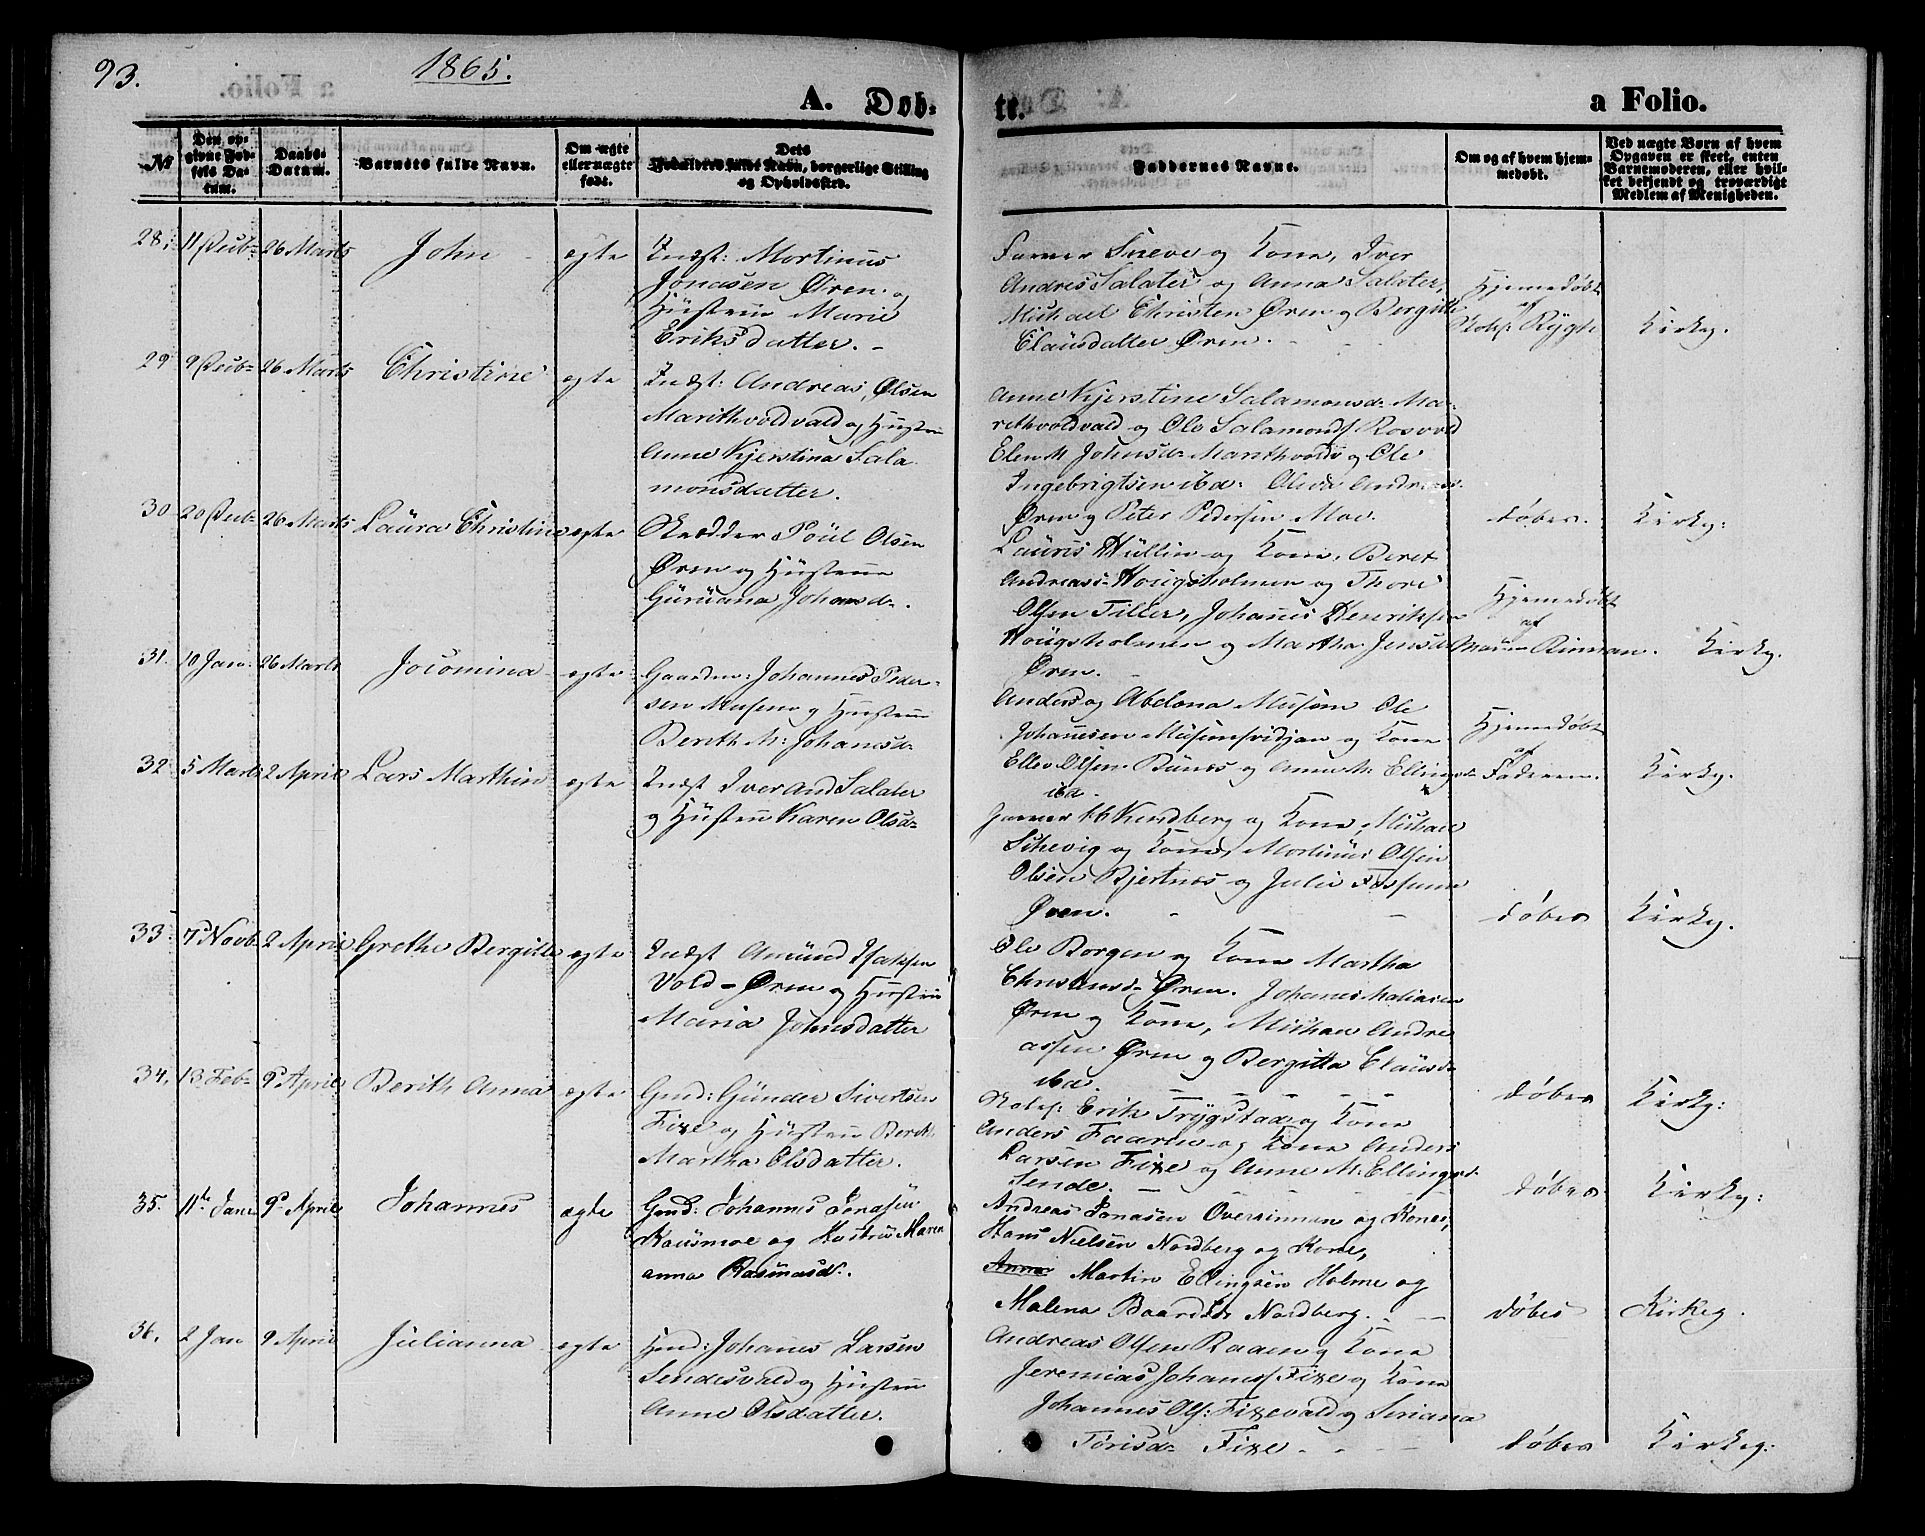 93.
1865.
A. Døb-
te.
a Folio.
Nr
Den op-
givne Fød-
sels Da-
tum.
Daabs-
Datum.
Barnets fulde Navn.
Om ægte
eller uægte
født.
Dets
Forældres fulde Navn, borgerlige Stilling
og Opholdssted.
Faddernes Navne.
Om og af hvem hjem-
medøbt.
Ved uægte Børn af hvem
Opgaven er skeet, enten
Barnemoderen, eller hvil-
ket bekjendt og troværdigt
Medlem af Menigheden.
28. 11 Feb: 26 Marts John ægte Indst: Mortinus
Jonasen Øren og
Hustrue Marie
Eriksdatter.
Farver Sneve og Kone, Iver
Andreas Salater og Anna Salater,
Michael Christen Øren og Bergitte
Clausdatter Øren.
Hjemedøbt
af
Rygh
Kirkg.
29 9 Feb: 26 Marts Christine ægte Indst: Andreas Olsen
Marithvoldvald og Hustru
Anne Kjerstina Sala
monsdatter.
Anne Kjerstine Salamonsd: Ma-
rithvoldvald og Ole Salamons. Rosvold
Elen M Johnsd: Marithvold og Ole
Ingebrigtsen ibd: Andreas.
Øren og Peter Pedersen Moe.
døbes.
Kirkg:
30 20 Feb: 26 Marts Laura Christine ægte Skrædder Poul Olsen
Øren og Hustrue
Guruana Johansd:.
Lauris Hullin og Kone, Beret
Andreasd: Hougsholmen og Thore
Olsen Tiller, Johanes Henriksen
Hougsholmen og Martha Jensd:
Øren.
Hjemedøbt
af
Rinnan.
Kirkg.
31. 10 Jan. 26 Marts Jocomina ægte Gaardm: Johannes Peder-
sen Musem og Hustrue
Berith M: Johansd:
Anders og Abelona Musem Ole
Johannesen og Kone
Ellev Olsen Bunes og Anne M: Ellingsd:
ibd.
Hjemedøbt
af
Faderen.
Kirkg.
32 5 Marts 2 April Lars Marthin ægte Indst Iver And Salater
og Hustru Karen Olsd:
Garver Nordberg og Kone, Michael
Schevig og Kone, Mortinus Olsen
Olsen Bjertnes og Julie Fossum
Øren.
døbes
Kirkg.
33 7 Novb. 2 April Grethe Bergitte ægte Indst Amund Isaksen
Vold-Øren og Hustru
Maria Johnsdatter
Ole Borgen og Kone Martha
Christensd: Øren. Johanes Matiasen
Øren og Kone, Michael Andre
assen Øren og Bergitta Clausd:
ibd.
døbes
Kirkg:
34. 13 Feb: 9 April Berith Anna ægte Gmd: Gunder Sivertsen
Fixe og Hustru Bereth
Martha Olsdatter.
Erik Trygstad og Kone
Anders Faaren og Kone Anders
Larsen Fixe og Anne M: Ellingsd:
Sende.
døbes
Kirkg:
35. 11te Jan 9 April Johannes ægte Gmd: Johannes Jonassen
Kausmoe og Hustru Maren
anna Rasmusd:.
Andreas Jonasen Overrinnan og Kone,
Hans Nielsen Nordberg og Kone,
Anne Martin Ellingsen Holme og
Malena Baardsdr Nordberg.
døbes
Kirkeg.
36. 2 Jan 9 April Julianna ægte Hmd: Johanes Larsen
Sendesvald og Hustrue
Anne Olsdatter.
Andreas Olsen Raaen og Kone
Jeremias Johans. Fixe og Kone
Johannes Ols: Fixevald og Seriana
Torisd: Fixe.
døbes
Kirkg: